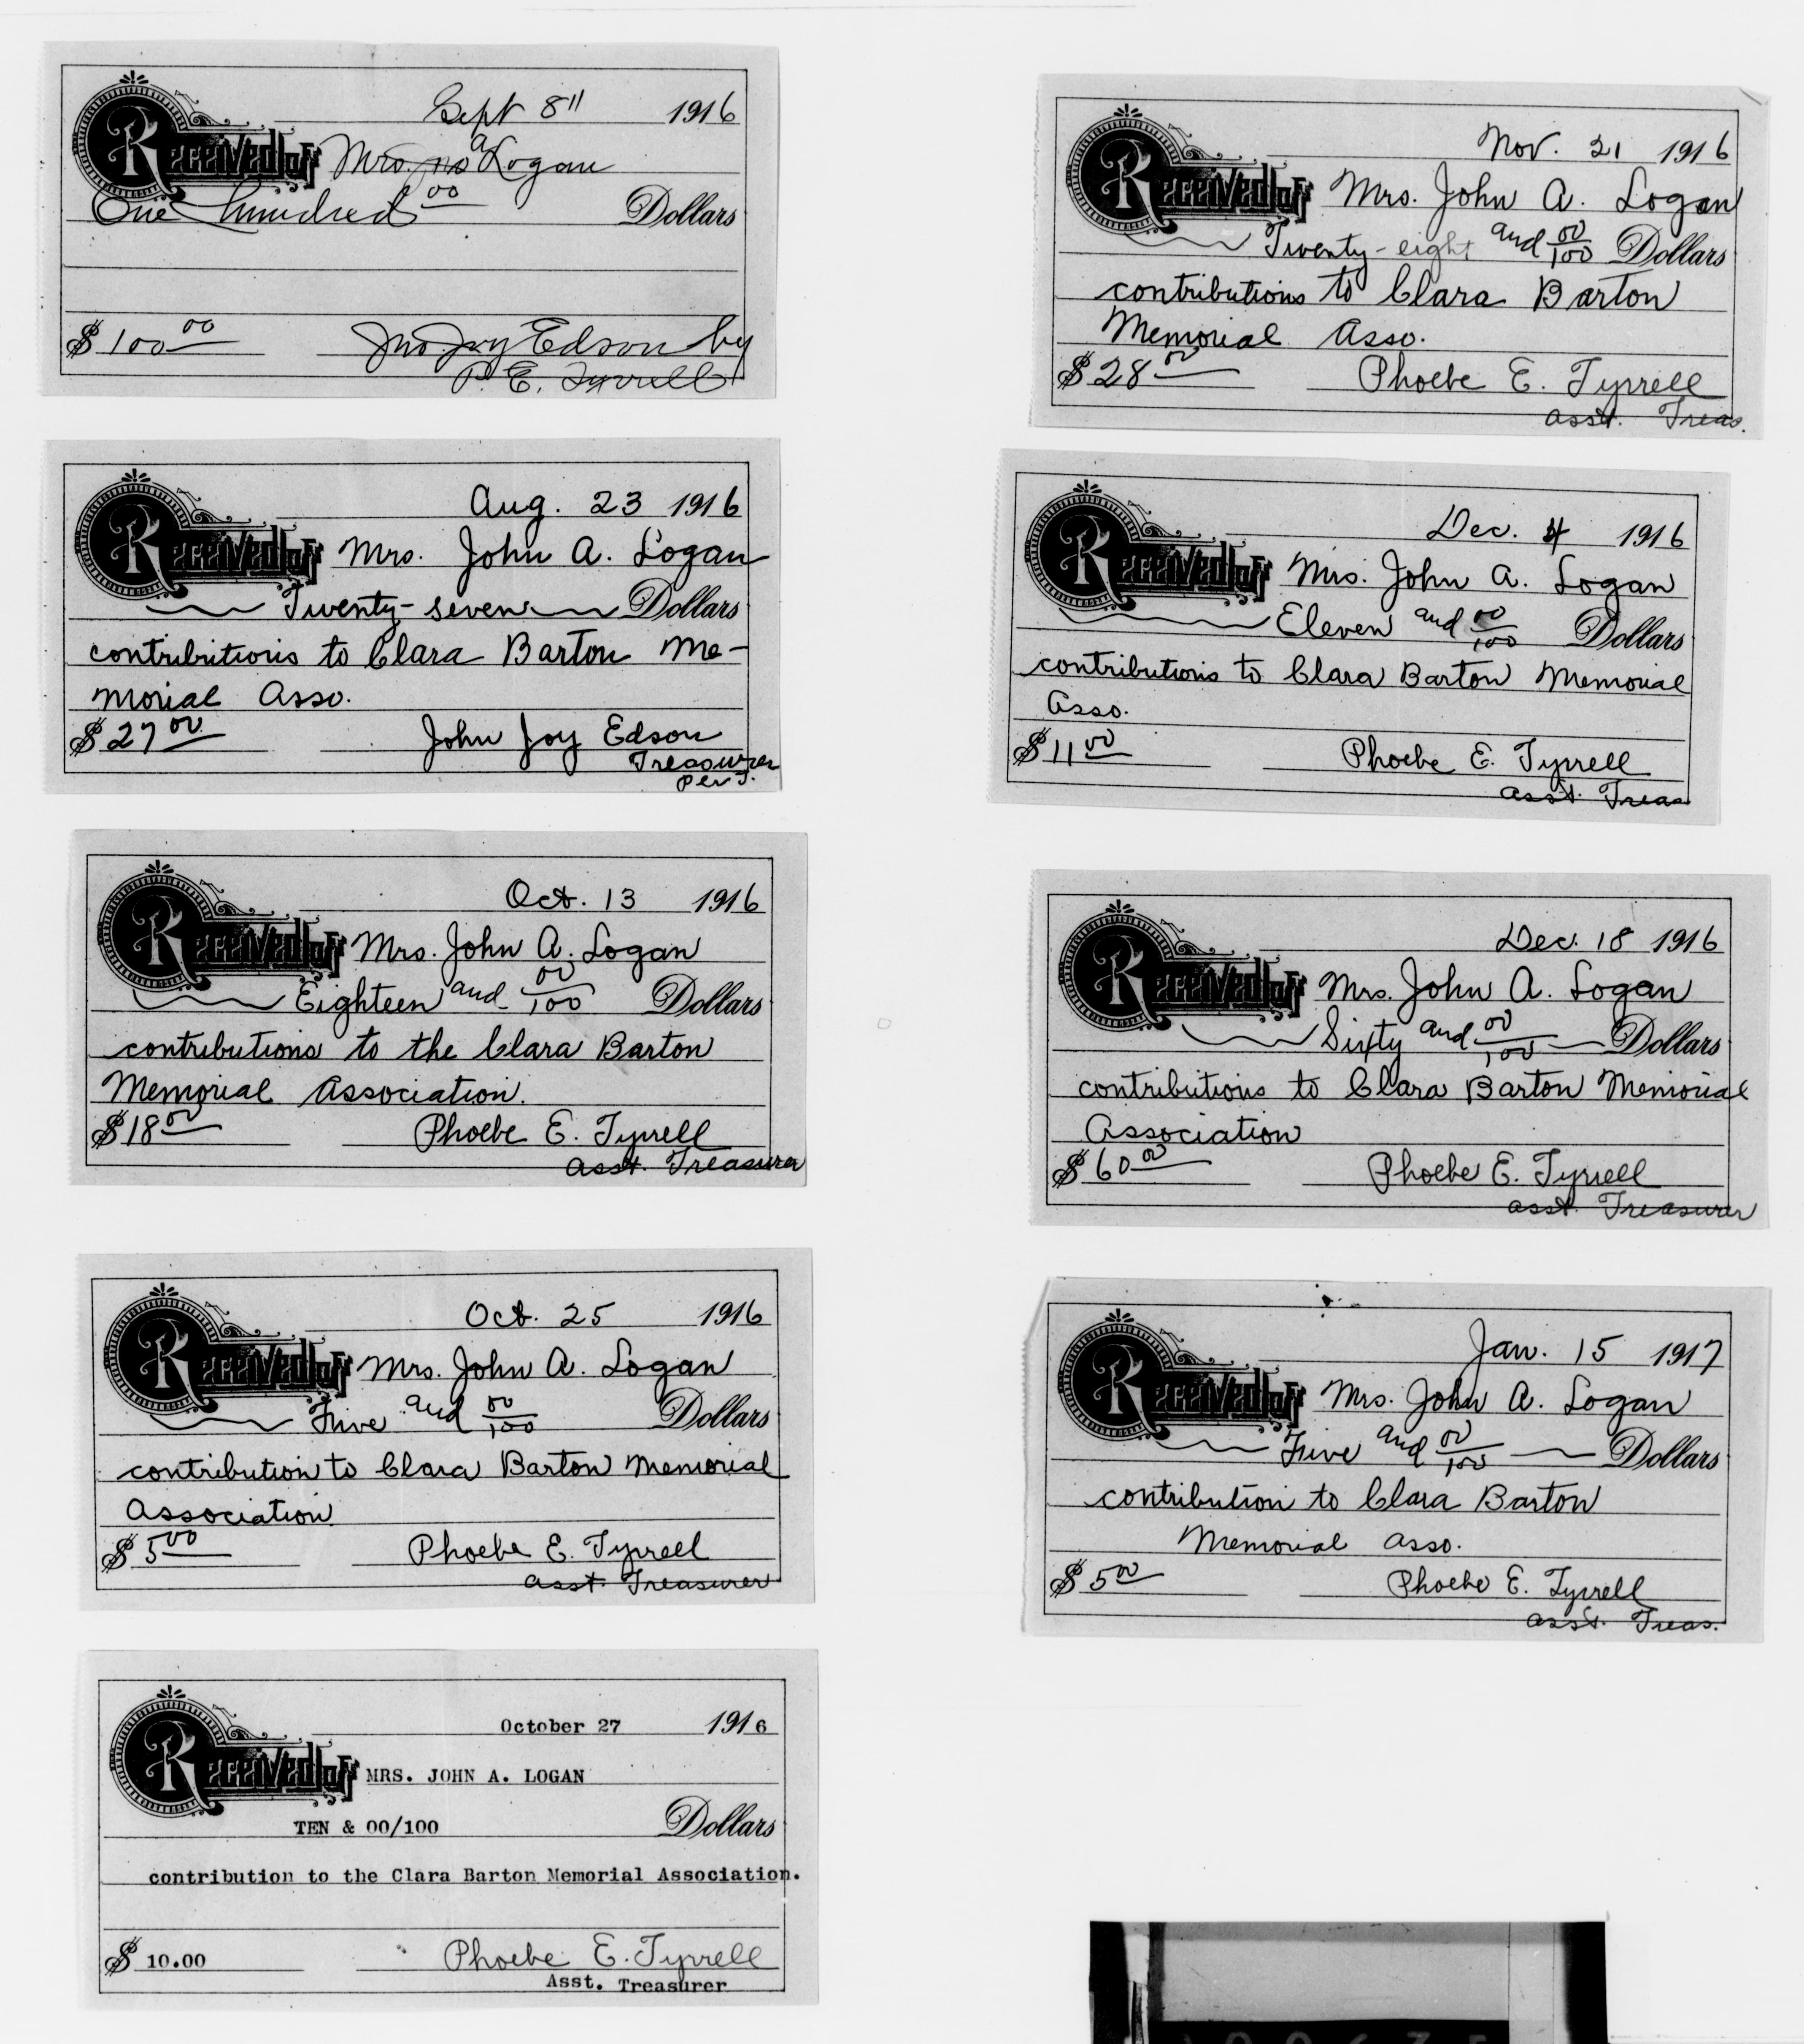 Sept 8" 1916
Received of Mrs. Jno A Logan
One hundred 00 Dollars
$ 100 00 Jno Joy Edson by
P. E. Tyrrell
Aug. 23 1916
Received of Mrs. John A. Logan
Twenty-seven Dollars
contributions to Clara Barton Me-
morial Asso.
$ 27 00 John Joy Edson
Treasurer
Per T.
Oct. 13 1916
Received of Mrs. John A. Logan
Eighteen and 00/100 Dollars
contributions to the Clara Barton
Memorial Association.
$ 18 00 Phoebe E. Tyrrell
Asst. Treasurer
Oct. 25 1916
Received of Mrs. John A. Logan
Five and 00/100 Dollars
contribution to Clara Barton Memorial
Association
$ 5 00 Phoebe E. Tyrrell
Asst. Treasurer
October 27 1916
Received of MRS. JOHN A. LOGAN
TEN & 00/100 Dollars
contribution to the Clara Barton Memorial Association.
$ 10.00 Phoebe E. Tyrrell
Asst. Treasurer
Nov. 21 1916
Received of Mrs. John A. Logan
Twenty-eight and 00/100 Dollars
contributions to Clara Barton
Memorial Asso.
$ 28 00 Phoebe E. Tyrrell
Asst. Treas.
Dec. 4 1916
Received of Mrs. John A. Logan
Eleven and 00/100 Dollars
contributions to Clara Barton Memorial
Asso.
$ 11 00 Phoebe E. Tyrrell
Asst. Treas
Dec. 18 1916
Received of Mrs. John A. Logan
Sixty and 00/100 Dollars
contributions to Clara Barton Memorial
Association
$ 60 00 Phoebe E. Tyrrell
Asst. Treasurer
Jan. 15 1917
Received of Mrs. John A. Logan
Five and 00/100 Dollars
contribution to Clara Barton
Memorial Asso.
$ 5 00 Phoebe E. Tyrrell
Asst. Treas.